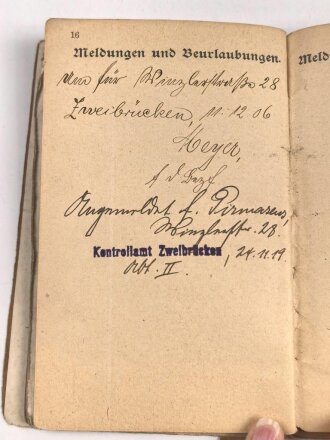 16
Meldungen und Beurlaubungen.
für Winzlerstraße 28
Zweibrücken, 11.12 06
Meyer,
f d Bezf
Angemeldet f. Pirmasens,
Winzlerstr. 28.
Kontrollamt Zweibrücken, 24.11.19.
Abt. II.
Me